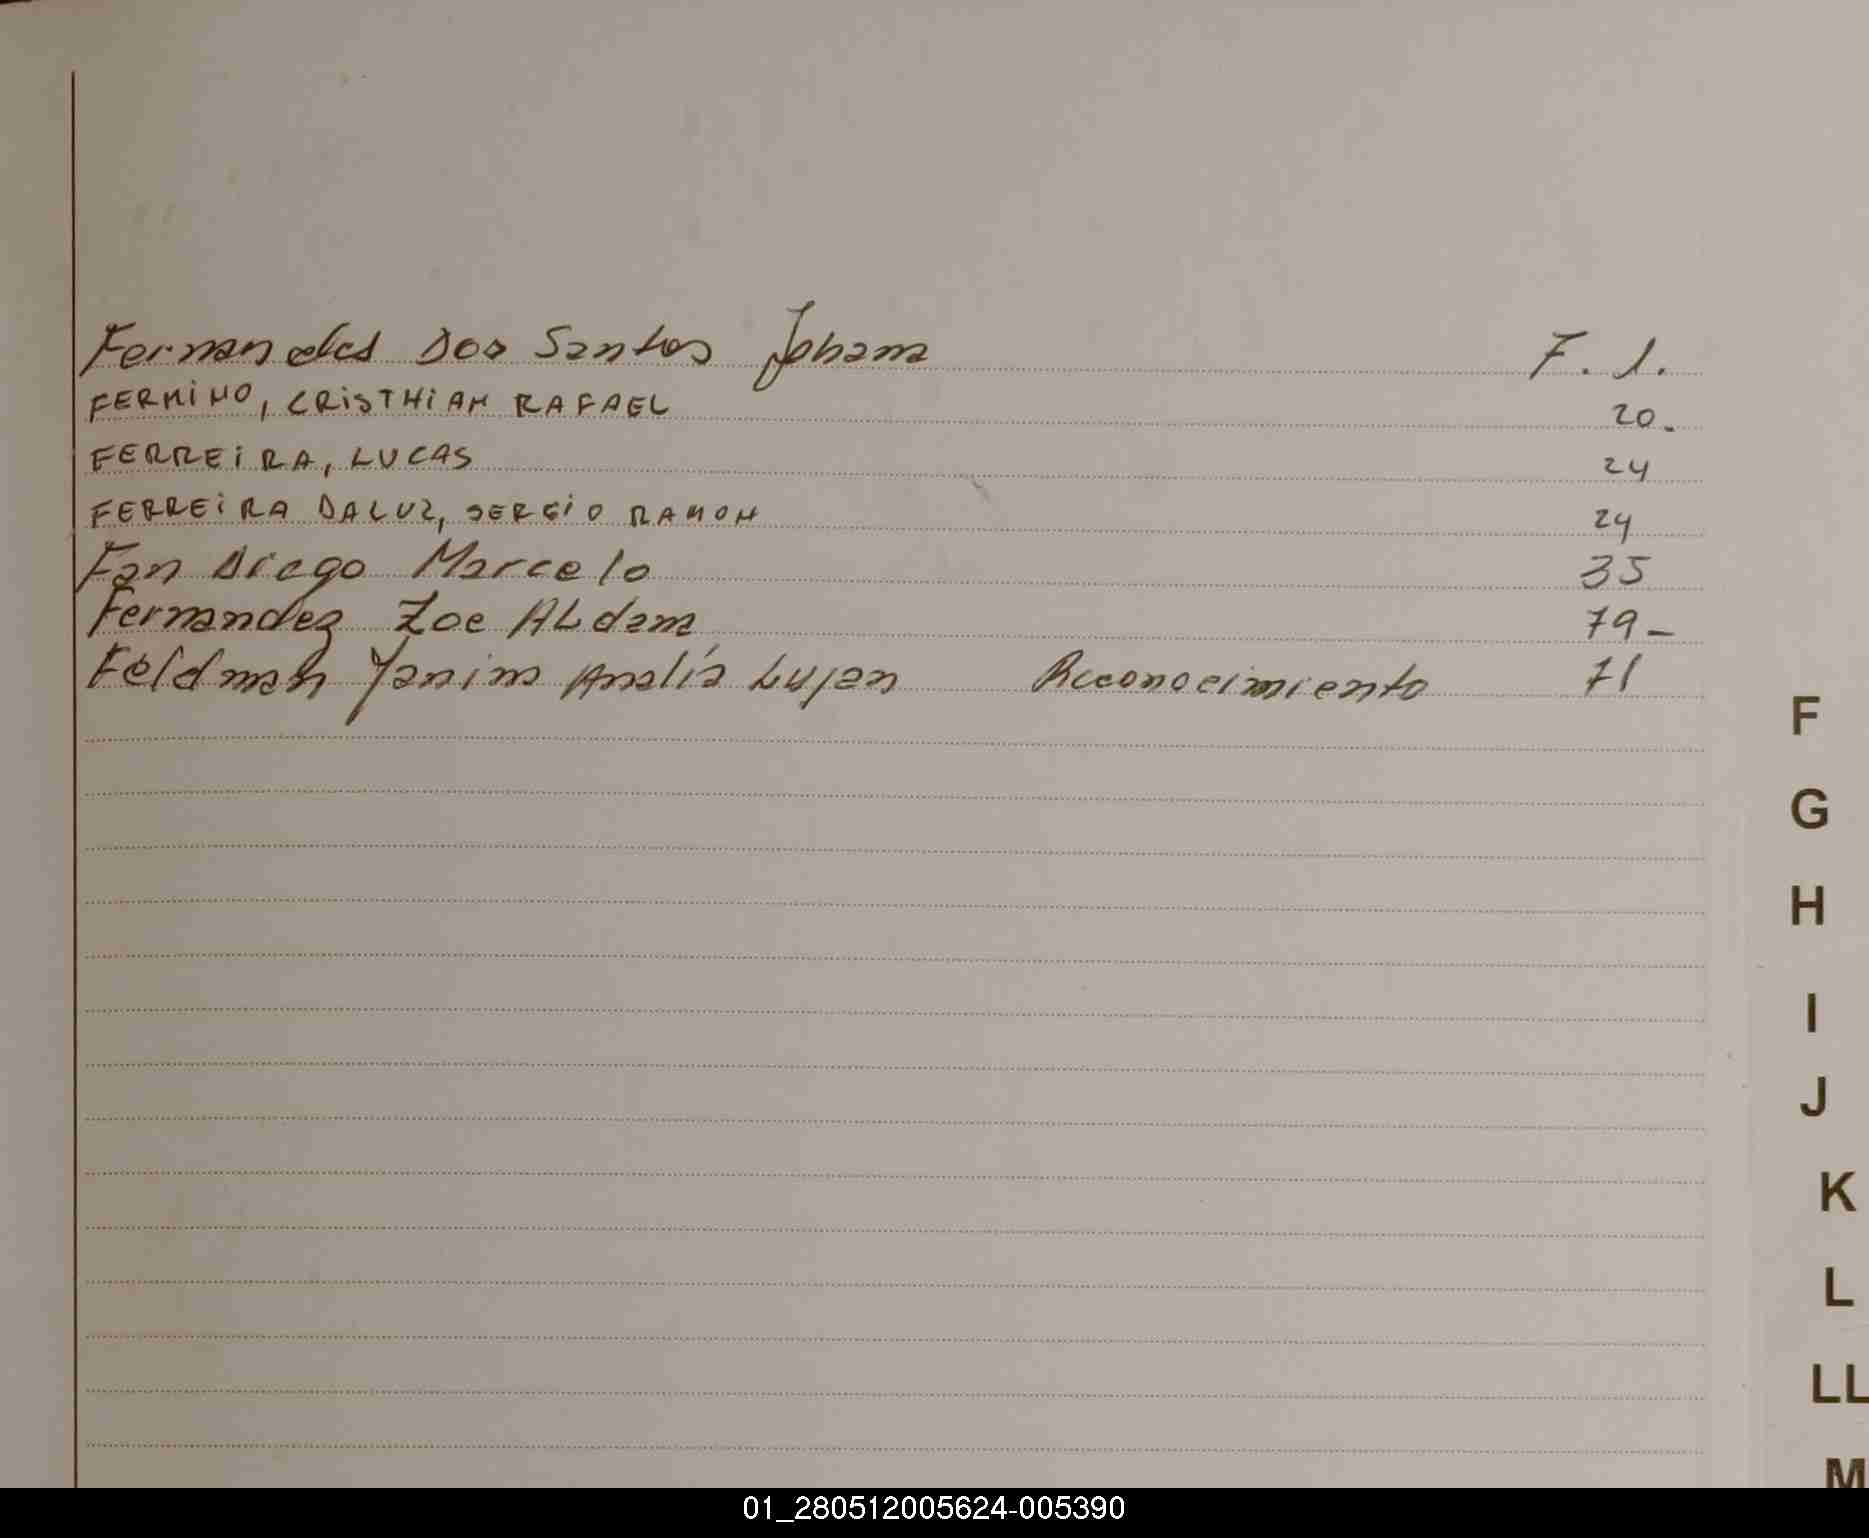 Fernandes Dos Santos Johana F. 1.
FERMINO, CRISTHIAN RAFAEL 20.
FERREIRA, LUCAS 24
FERREIRA DALUZ, SERGIO RAMON 24
Fan Diego Marcelo 35
Fernandez Zoe ALdana 79-
Feldman Yanina Analía Lujan Reconocimiento 71
F
G
H
I
J
K
L
LL
M
01_280512005624-005390